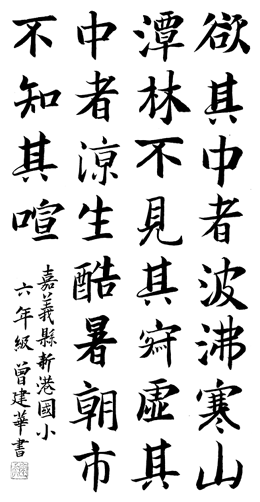 欲其中者波沸寒山
潭林不見其穽虛其
中者涼生酷暑朝市
不知其喧
嘉義縣新港國小
六年級曾建華書